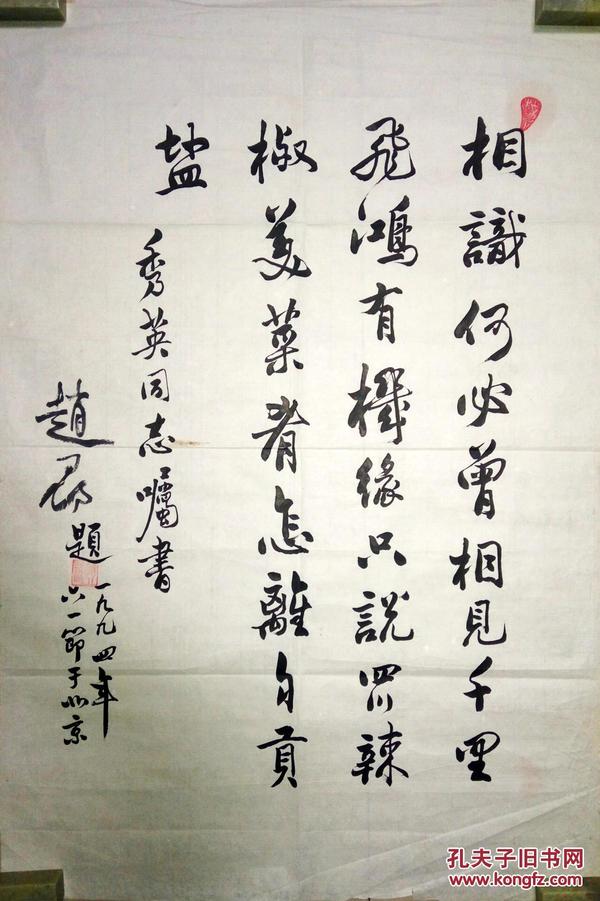 相識何必曾相見千里
飛鴻有機緣只説四川辣
椒美菜肴怎離自貢
盐
秀英同志囑書
趙尋題
一九九四年
六一節于北京
孔夫子旧书网
www.kongfz.com